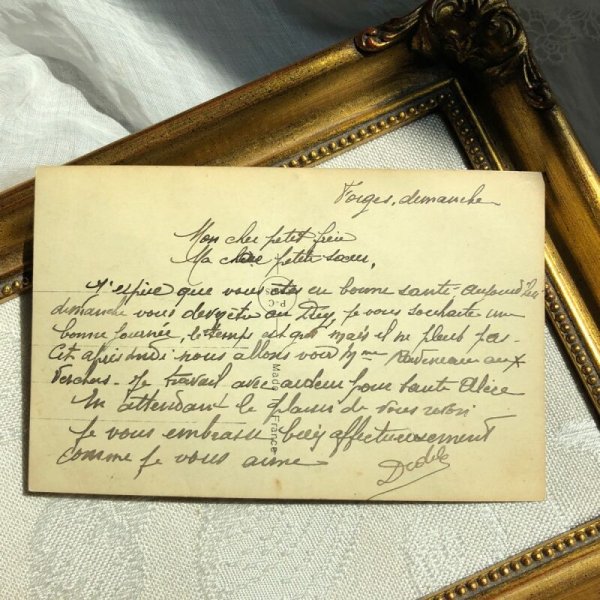 Forges, dimanche
Mon cher petit frère
Ma chère petite soeur,
J'espère que vous êtes en bonne santé - aujourd'hui
dimanche vous devez être au Dey, je vous souhaite une
bonne journée, le temps est gris mais il ne pleut pas -
Cet après midi nous allons voir Mme aux
Verchers - Je travail avec ardeur pour tante Alice
En attendant le plaisir de vous revoir
je vous embrasse bien affectueusement
comme je vous aime
P.C.
Made in France